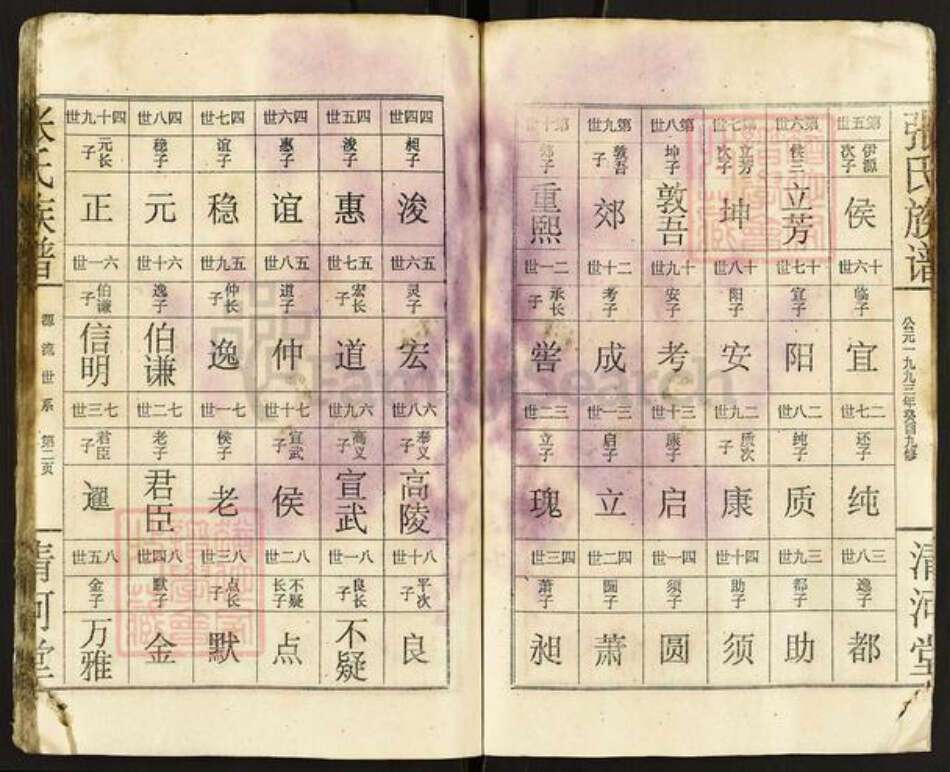 張氏族谱
公元一九九三年癸酉九修
清河堂
世五第 世六第 世七第 世八第 世九第 世十第
伊源次子 侯三子 立芳次子 坤子 敦吾子
侯 立芳 坤 敦吾 郊 重熙
世六十 世七十 世八十 世九十 世十二 世一二
临子 宜子 阳子 安子 考子 承长子
宜 阳 安 考 成 喾
世七二 世八二 世九二 世十三 世一三 世二三
还子 纯子 质次子 康子 启子 立子
纯 质 康 启 立 瑰
世八三 世九三 世十四 世一四 世二四 世三四
逸子 都子 助子 须子 圆子 萧子
都 助 须 圆 萧 昶
世四四 世五四 世六四 世七四 世八四 世九十四
昶子 浚子 惠子 谊子 稳子 元长子
浚 惠 谊 稳 元 正
世六五 世七五 世八五 世九五 世十六 世一六
灵子 宏长子 道子 仲长子 逸子 伯谦子
宏 道 仲 逸 伯谦 信明
世八六 世九六 世十七 世一七 世二七 世三七
奉义子 高义子 宣武子 侯子 老子 君臣子
高陵 宣武 侯 老 君臣 暹
世十八 世一八 世二八 世三八 世四八 世五八
平次子 良长子 不疑长子 点长子 默子 金子
良 不疑 点 默 金 万雅
张氏族谱
源流世系 第二页
清河堂
FamilySearch